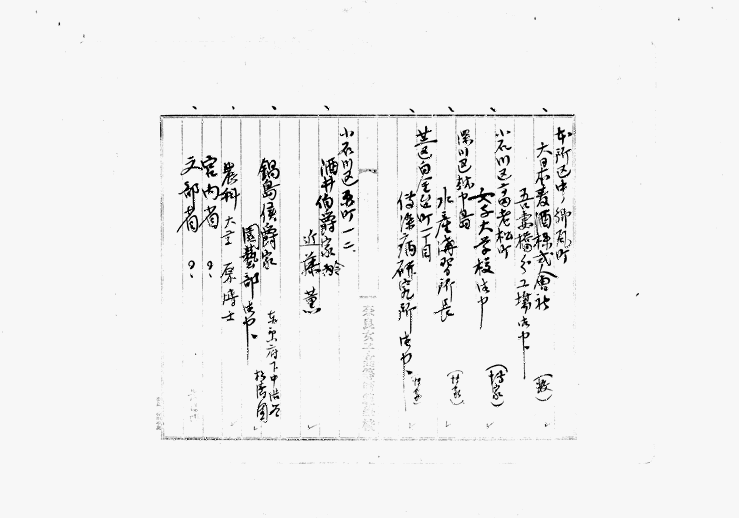 本所区中ノ郷瓦町
大日本麦酒株式會社
吾妻橋分工場御中
(数)
小石川区高田老松町
女子大学校御中
(博家)
深川区越中島
水産講習所長
芝区白金台町一丁目
傳染病研究所御中
小石川区原町一二
酒井伯爵家
近藤薫
鍋島侯爵家
園藝部御中
東京府下中渋谷
松涛園
農科大学 原博士
宮内省 ?
文部省 ?
奈良女子高等師範學校